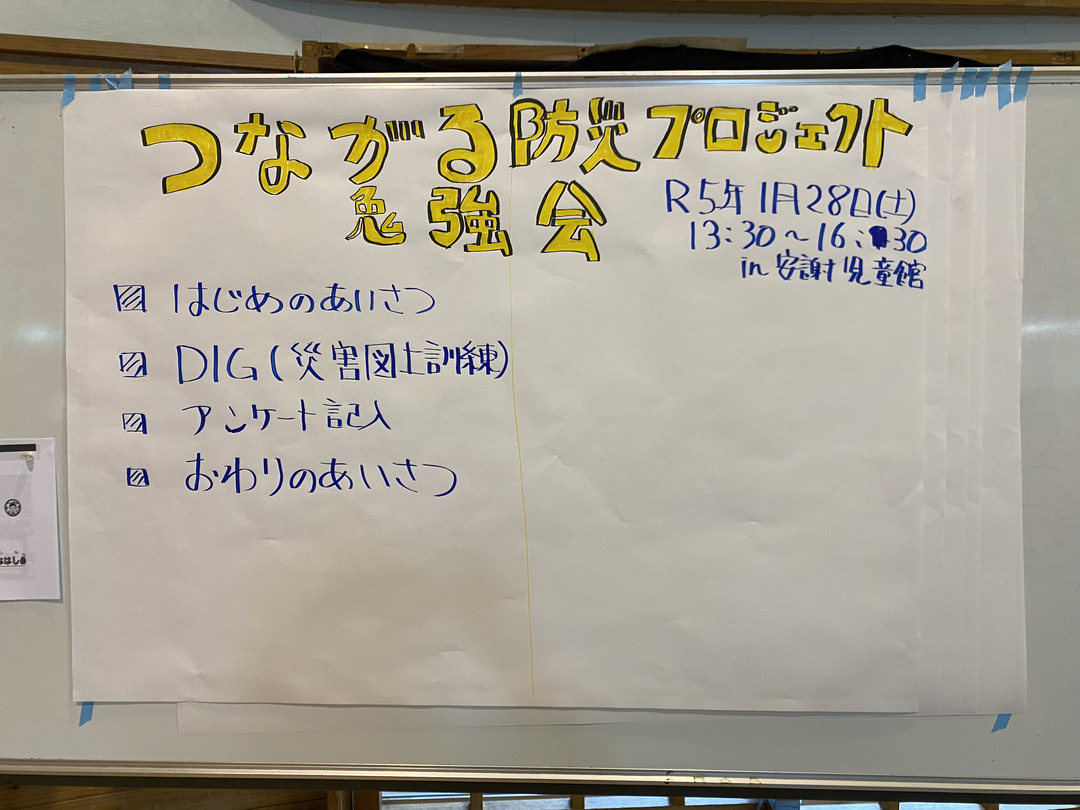 つながる防災プロジェクト
勉強会
R5年1月28日(土)
13:30～16:30
in 安謝児童館
▨ はじめのあいさつ
▨ DIG(災害図上訓練)
▨ アンケート記入
▨ おわりのあいさつ